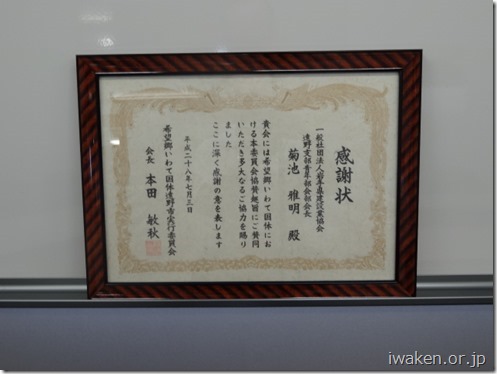 感謝状
一般社団法人岩手県建設業協会
遠野支部青年部会部会長
菊池 雅明 殿
貴会には希望郷いわて国体にお
ける本委員会協賛趣旨にご賛同
いただき多大なるご協力を賜り
ました
ここに深く感謝の意を表します
平成二十八年七月三日
希望郷いわて国体遠野市実行委員会
会長 本田 敏秋
iwaken.or.jp